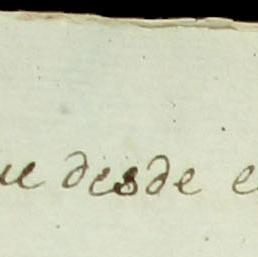 ue desde e